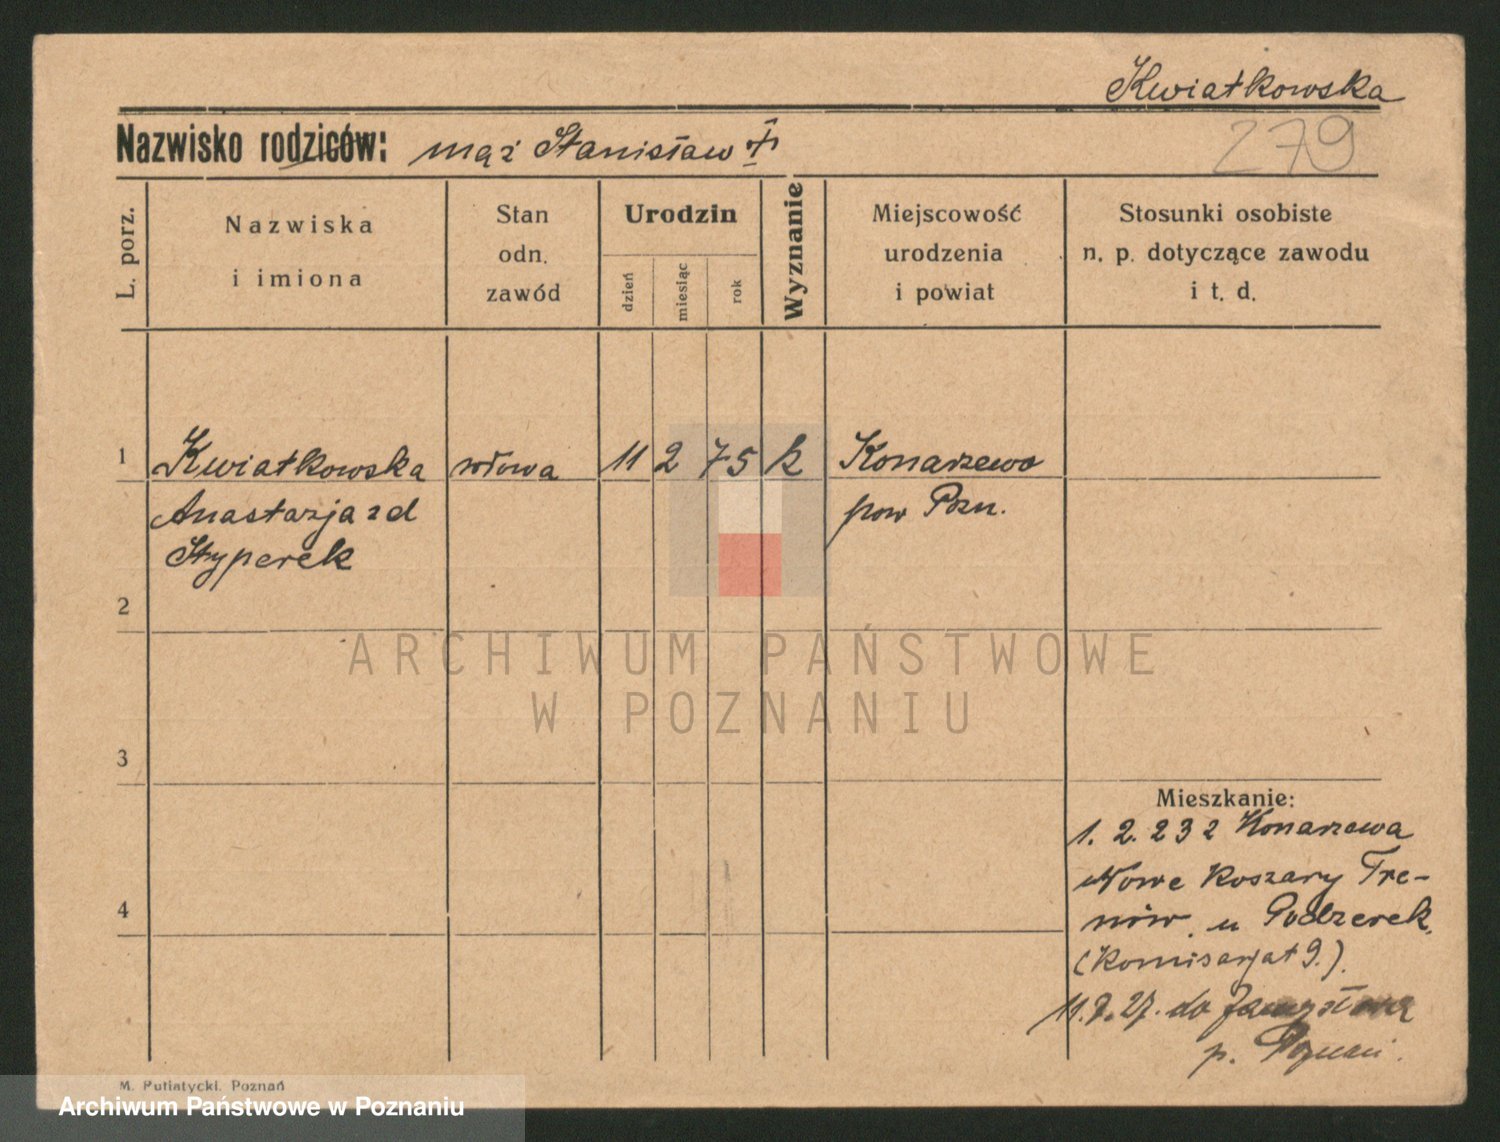 Kwiatkowska
Nazwisko rodziców: mąż Stanisław
279
L. porz.
Nazwiska
i imiona
Stan
odn.
zawód
Urodzin
dzień
miesiąc
rok
Wyznanie
Miejscowość
urodzenia
i powiat
Stosunki osobiste
n. p. dotyczące zawodu
i t. d.
1 Kwiatkowska wdowa 11 2 75 k Konarzewo
Anastazja z d pow Pozn.
Styperek
2
ARCHIWUM PAŃSTWOWE
W POZNANIU
3
Mieszkanie:
1. 2. 23 z Konarzewa
Nowe Koszary Tre-
nów. u Podzerek.
(Komisarjat 9.).
4
11. 7. 27. do
p. Poznań.
M. Putiatycki. Poznań
Archiwum Państwowe w Poznaniu